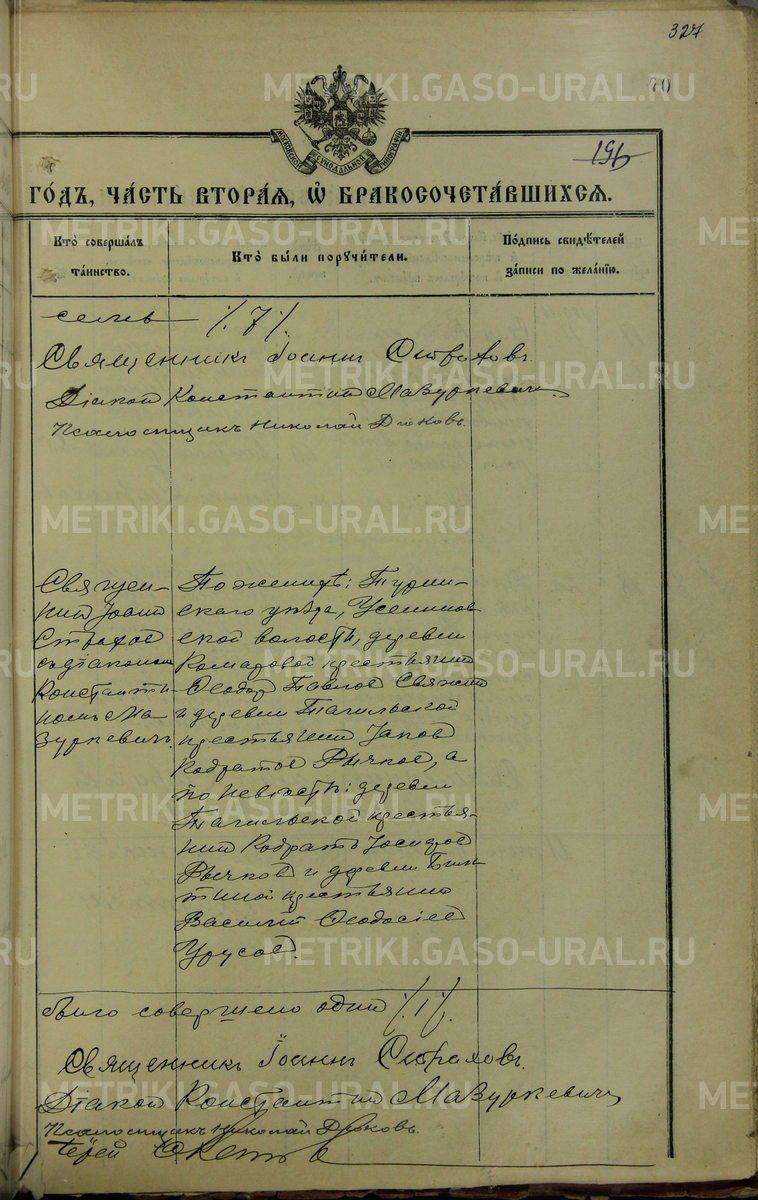 327
70
МОСКОВСКОЙ СѴНОДАЛЬНОЙ ТИПОГРАФІИ
196
ГО́ДЪ, ЧА́СТЬ ВТОРА́Я, Ѿ БРАКОСОЧЕТА́ВШИХСЯ.
Кто̀ соверша́лъ та́инство.
Кто̀ бы́ли поручи́тели.
По́дпись свидѣ́телей за́писи по жела́нїю.
семь ./.7./.
Священникъ Іоаннъ Страховъ.
Діаконъ Константинъ Мазуркевичъ.
Псаломщикъ Николай Дюковъ.
Священ-
никъ Іоаннъ
Страховъ
съ діакономъ
Константи-
номъ Ма
зуркевичъ.
По женихѣ: Турин-
скаго уѣзда, Усениновс
ской волости, деревни
Комаровой крестьянинъ
Ѳеодоръ Павловъ Свяжин
и деревни Тагильской
крестьянинъ Іаковъ
Кодратовъ Рычковъ, а
по невѣстѣ: деревни
Тагильской крестья-
нинъ Кодратъ Іосифовъ
Рычковъ и деревни
крестьянинъ
Василій Ѳеодосіевъ
Урусовъ.
было совершено одинъ ./.1./.
Священникъ Іоаннъ Страховъ.
Діаконъ Константинъ Мазуркевичъ
Псаломщикъ Николай Дюковъ.
Іерей
METRIKI.GASO-URAL.RU